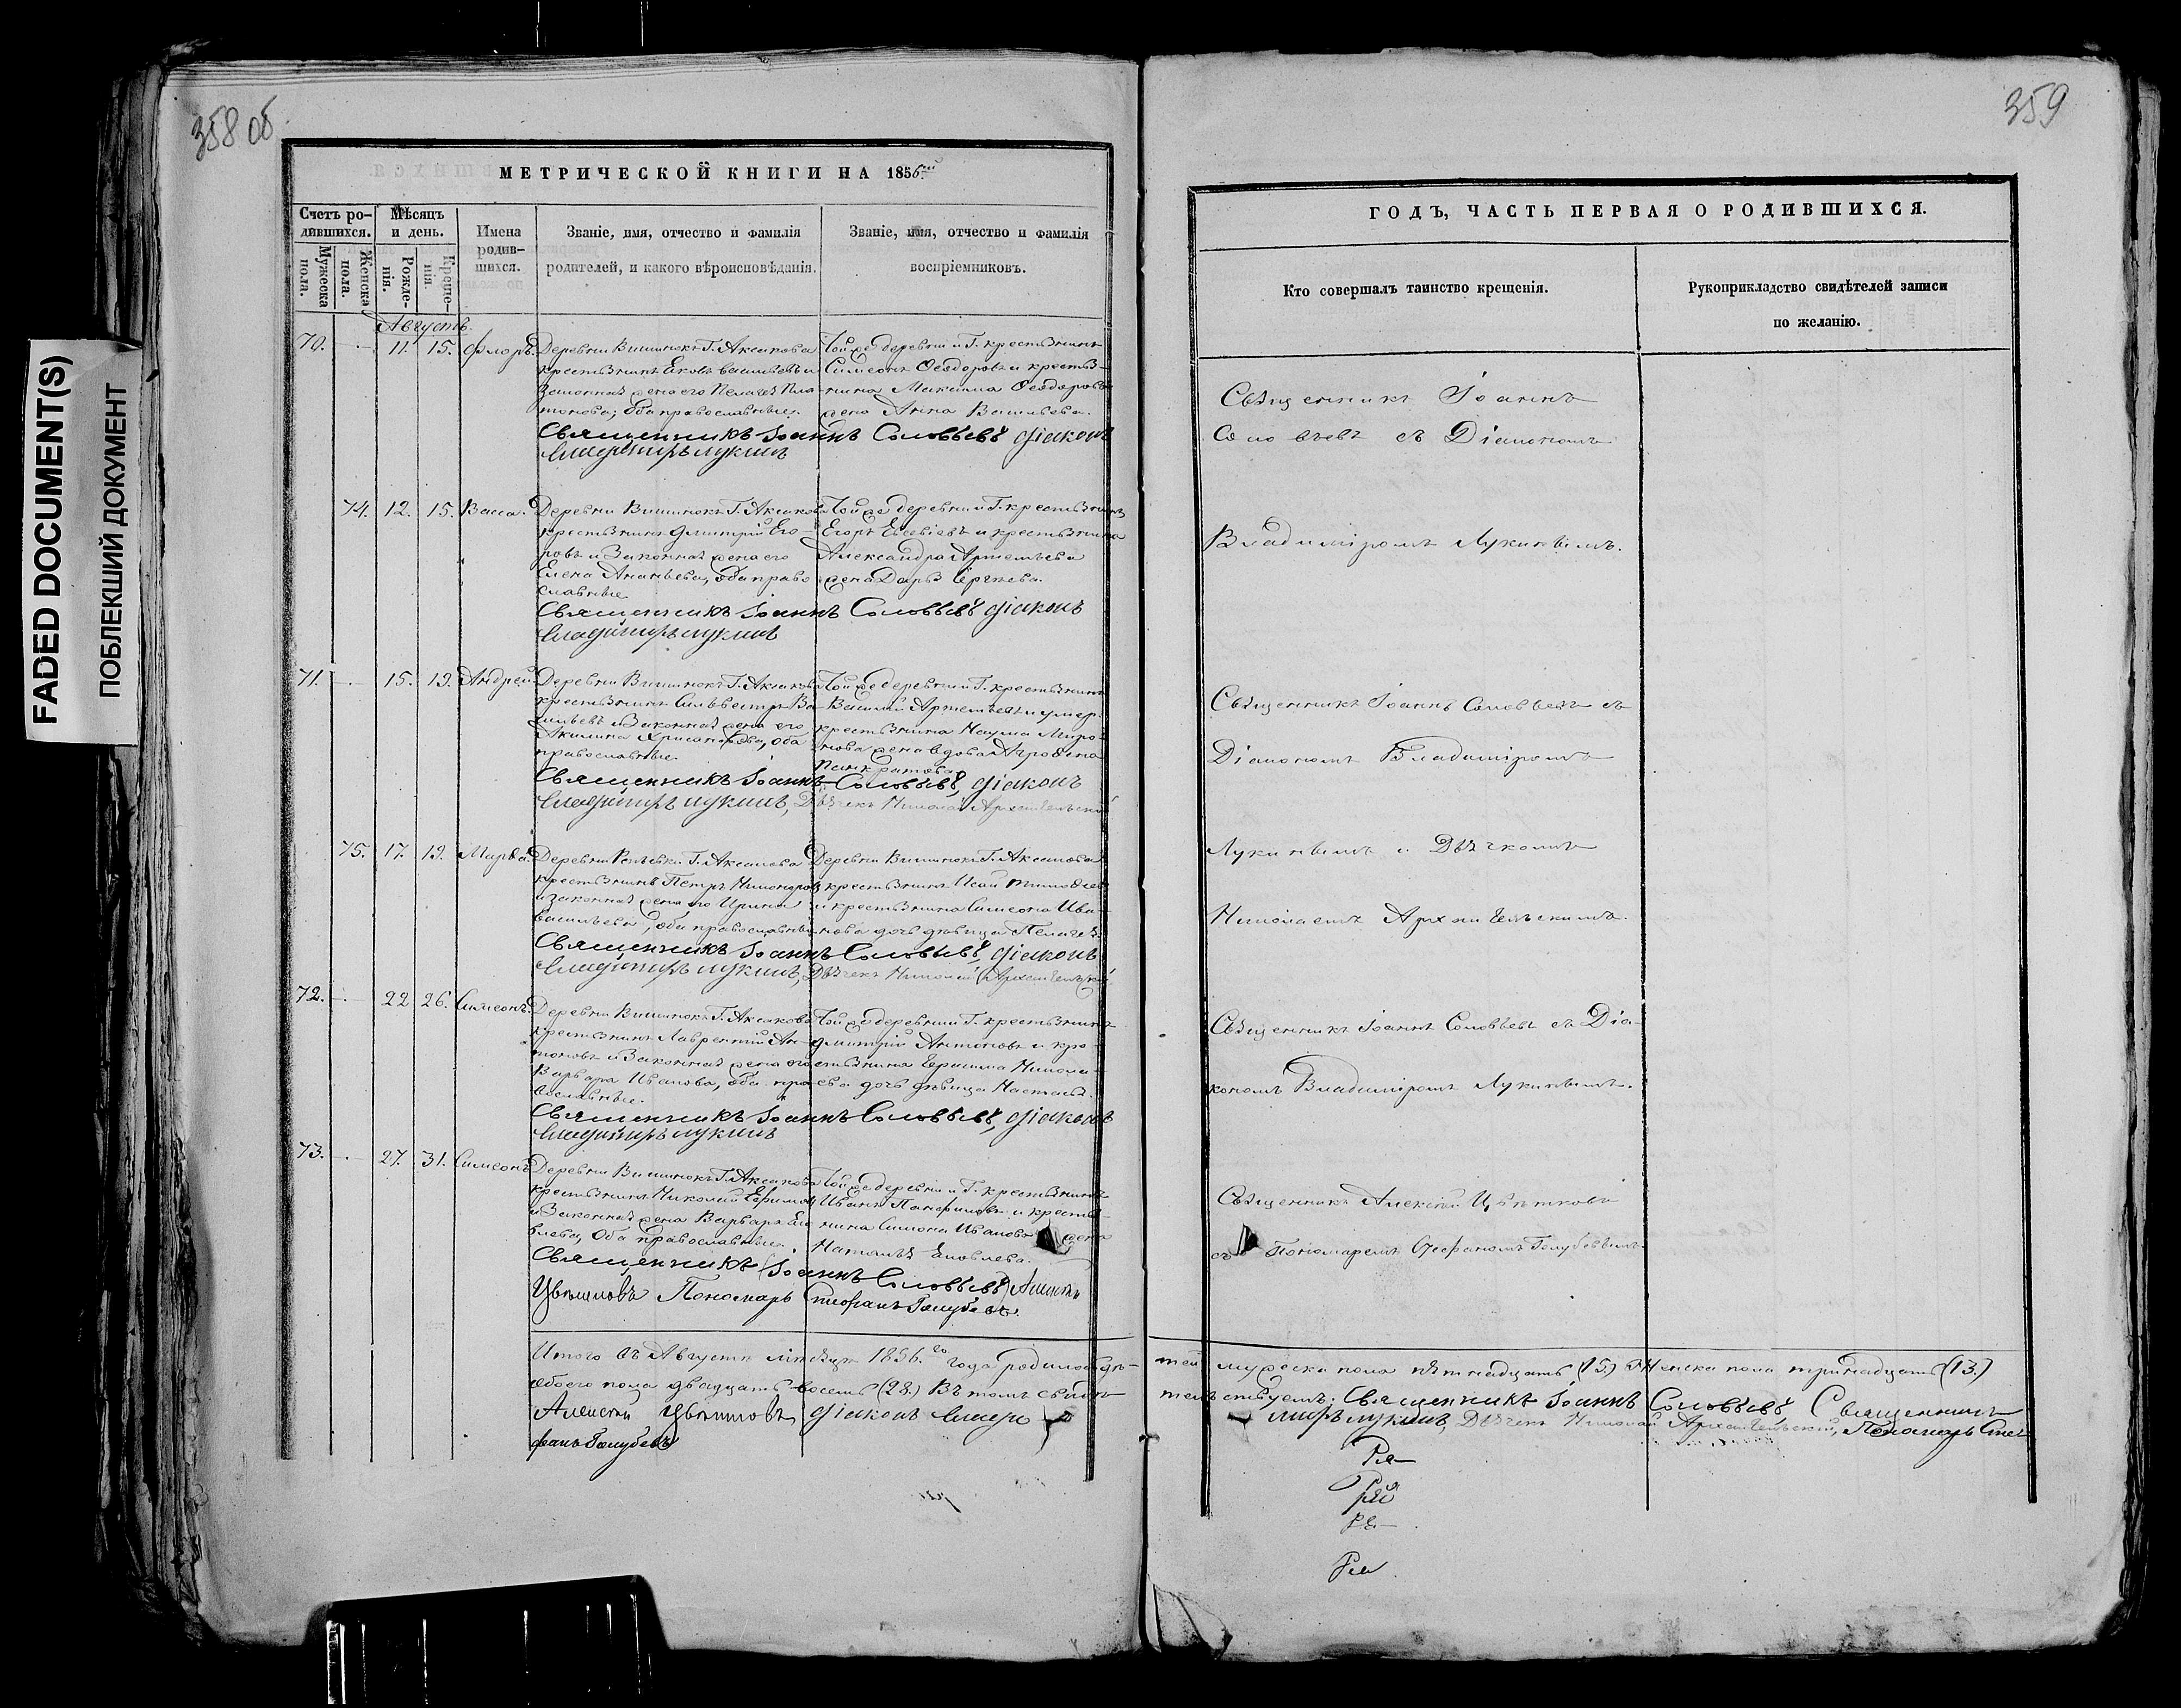 358 об
359
FADED DOCUMENT(S)
ПОБЛЕКШИЙ ДОКУМЕНТ
МЕТРИЧЕСКОЙ КНИГИ НА 1856й
Счетъ ро-
дившихся.
Мѣсяцъ
и день.
Имена
родив-
шихся.
Званіе, имя, отчество и фамилія
родителей, и какого вѣроисповѣданія.
Званіе, имя, отчество и фамилія
воспріемниковъ.
Мужеска
пола.
Женска
пола.
Рожде-
нія.
Креще-
нія.
Августъ.
70. 11. 15. Флоръ.
Деревни Вишнокъ Г. Аксакова
крестьянинъ Яковъ Васильевъ и
Законная жена его Пелагея Пла-
тонова; оба православные.
Той же деревни и Г. крестьянинъ
Симеонъ Ѳеодоровъ и кресть-
янина Максима Ѳеодорова
жена Анна Васильева.
Священникъ Іоаннъ Соловьевъ Діаконъ
Владиміръ Лукинъ
74. 12. 15. Васса.
Деревни Вишнокъ Г. Аксакова
крестьянинъ Дмитрій Его-
ровъ и Законная жена его
Елена Ананьева, оба право-
славные.
Той же деревни и Г. крестьянинъ
Егоръ Евсевіевъ и крестьянина
Александра Артемьева
жена Дарья Сергѣева.
Священникъ Іоаннъ Соловьевъ Діаконъ
Владиміръ Лукинъ
71. 15. 19. Андрей.
Деревни Вишнокъ Г. Аксакова
крестьянинъ Сильвестръ Ва-
сильевъ и Законная жена его
Акилина Хрисанфова, оба
православные.
Той же деревни и Г. крестьянинъ
Василій Артемьевъ и умер.
крестьянина Наума Миро-
нова жена вдова Агрофена
Панкратова.
Священникъ Іоаннъ Соловьевъ, Діаконъ
Владиміръ Лукинъ, Дьячекъ Николай Архангельскій
75. 17. 19. Марѳа.
крестьянинъ Петръ Никоноровъ
и законная жена его Ирина
Васильева, оба православные
Деревни Вишнокъ Г. Аксакова
крестьянинъ Исай Тимоѳеевъ
и крестьянина Симеона Ива-
нова дочь дѣвица Пелагея.
Священникъ Іоаннъ Соловьевъ, Діаконъ
Владиміръ Лукинъ, Дьячекъ Николай Архангельскій
72. 22 26. Симеонъ.
Деревни Вишнокъ Г. Аксакова
крестьянинъ Лаврентій Ан-
тоновъ и Законная жена его
Варвара Иванова, оба пра-
вославные.
Той же деревни и Г. крестьянинъ
Дмитрій Антоновъ и кре-
стьянина Ефима Никола-
ева дочь дѣвица Настасья.
Священникъ Іоаннъ Соловьевъ, Діаконъ
Владиміръ Лукинъ
73. 27. 31. Симеонъ
Деревни Вишнокъ Г. Аксакова
крестьянинъ Николай Ефимовъ
и Законная жена Варвара
оба православные.
Той же деревни и Г. крестьянинъ
Иванъ Панфиловъ и кресть-
янина Симона Иванова жена
Наталья Яковлева.
Священникъ Іоаннъ Соловьевъ Алексѣй
Цвѣтковъ Пономарь Стефанъ Голубевъ.
ГОДЪ, ЧАСТЬ ПЕРВАЯ О РОДИВШИХСЯ.
Кто совершалъ таинство крещенія.
Рукоприкладство свидѣтелей записи
по желанію.
Священникъ Іоаннъ
Соловьевъ съ Діакономъ
Владиміромъ Лукинымъ.
Священникъ Іоаннъ Соловьевъ съ
Діакономъ Владиміромъ
Лукинымъ и Дьячкомъ
Николаемъ Архангельскимъ.
Священникъ Іоаннъ Соловьевъ съ Діа-
кономъ Владиміромъ Лукинымъ.
Священникъ Алексѣй Цвѣтковъ
съ Пономаремъ Стефаномъ Голубевымъ
Итого въ Августѣ мѣсяцѣ 1856.го года родилось дѣ-тей мужеска пола пятнадцать (15.) Женска пола тринадцать (13.)
обоего пола двадцать восемь (28.) Въ томъ свидѣ-тельствуемъ: Священникъ Іоаннъ Соловьевъ Священникъ
Алексѣй Цвѣтковъ Діаконъ Влади-міръ Лукинъ, Дьячекъ Николай Архангельскій, Пономарь Сте-
фанъ Голубевъ